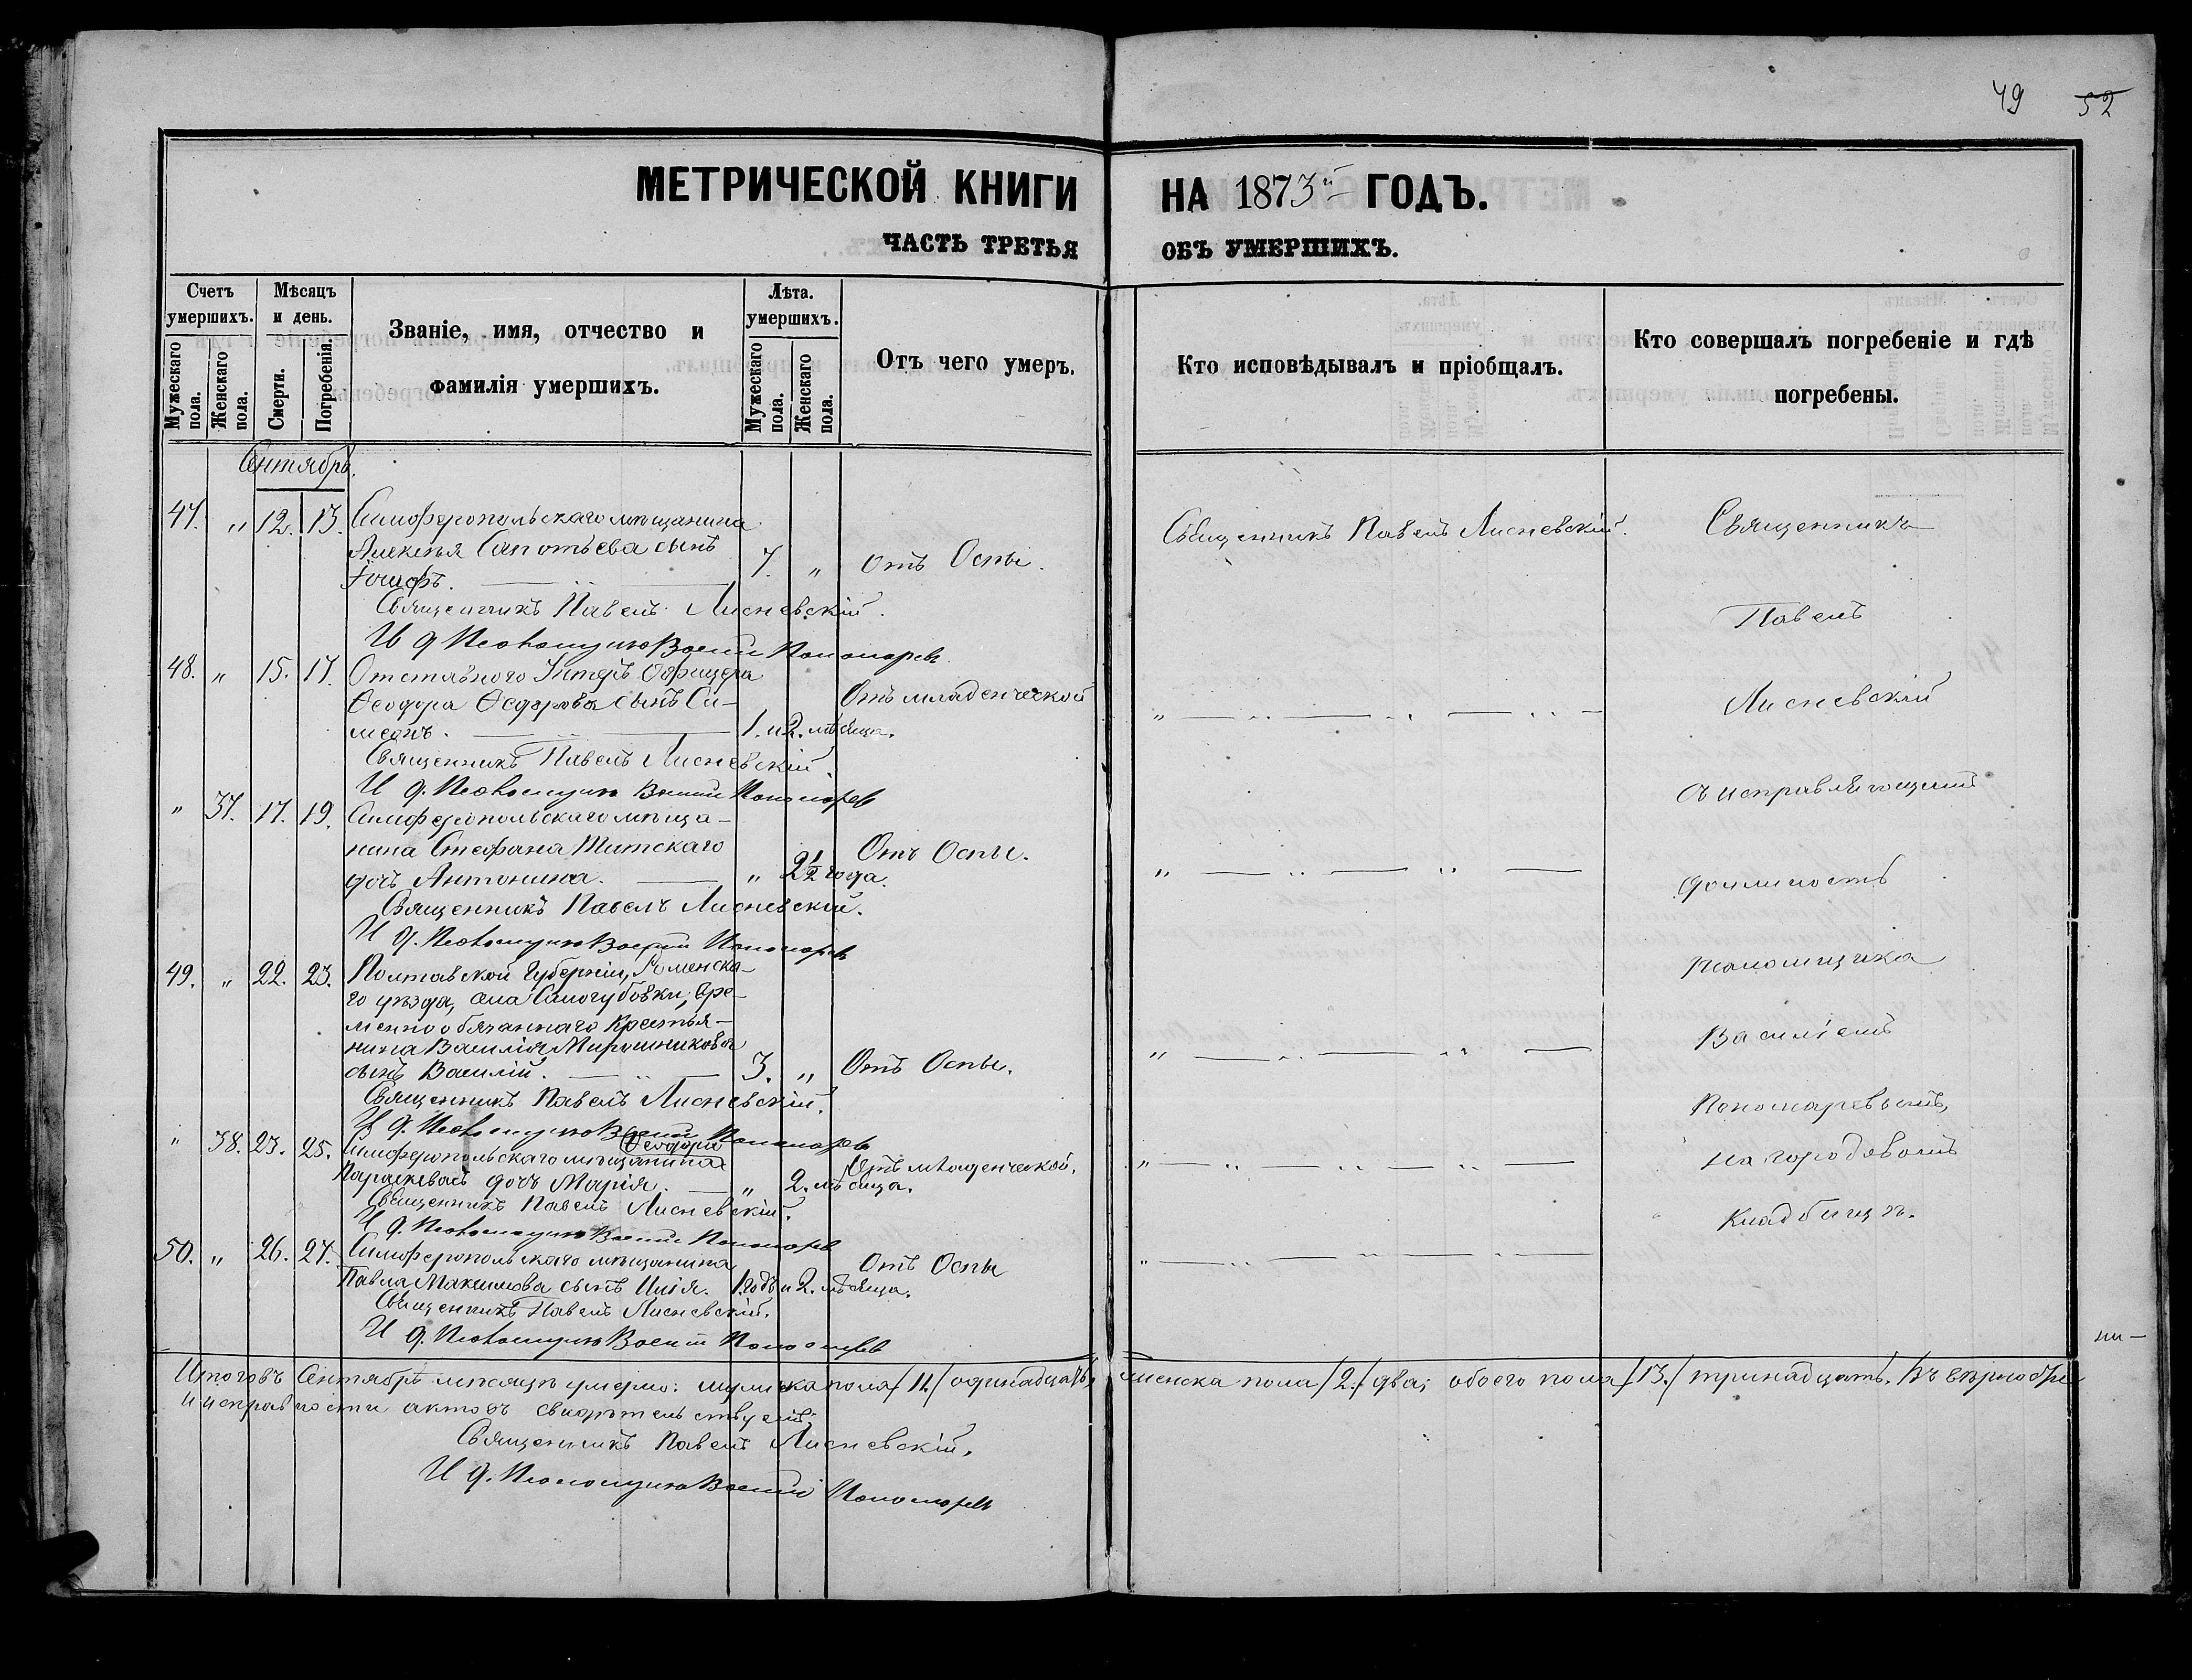 49 52
МЕТРИЧЕСКОЙ КНИГИ НА 1873й ГОДЪ.
ЧАСТЬ ТРЕТЬЯ ОБЪ УМЕРШИХЪ.
Счетъ умершихъ.
Мужескаго пола.
Женскаго пола.
Мѣсяцъ и день.
Смерти.
Погребенія.
Званіе, имя, отчество и
фамилія умершихъ.
Лѣта. умершихъ.
Мужескаго пола.
Женскаго пола.
Отъ чего умеръ.
Кто исповѣдывалъ и пріобщалъ.
Кто совершалъ погребеніе и гдѣ
погребены.
Сентябрь.
47. " 12. 13. Симферопольскаго мѣщанина
Алексѣя Сапотьева сынъ
Іосифъ. 7. " Отъ Оспы.
Священникъ Павелъ Лисневскій.
И д Псаломщика Василій Пономаревъ
48. " 15. 17. Отставного Унтеръ Офицера
Ѳеодора Ѳедорова сынъ Си-
меонъ. 1. и 2. мѣсяца. Отъ младенческой
Священникъ Павелъ Лисневскій.
И д. Псаломщика Василій Пономаревъ
" 37. 17. 19. Симферопольскаго мѣща-
нина Стефана Титскаго
дочь Антонина. " 2 1/2 года. Отъ Оспы.
Священникъ Павелъ Лисневскій.
И д. Псаломщика Василій Пономаревъ
49. " 22. 23. Полтавской Губерніи, Роменска-
го уѣзда, села Смогубовки, вре-
менно обязаннаго Крестья-
нина Василія Мирошникова
сынъ Василій. 3. " Отъ Оспы.
Священникъ Павелъ Лисневскій.
И д. Псаломщика Василій Пономаревъ
" 38. 23. 25. Симферопольскаго мѣщанина Ѳеодора
Параскевасъ дочь Марія. " 2. мѣсяца. Отъ младенческой.
Священникъ Павелъ Лисневскій.
И д. Псаломщика Василій Пономаревъ
50. " 26. 27. Симферопольскаго мѣщанина
Павла Максимова сынъ Илія. 1. годъ и 2. мѣсяца. Отъ Оспы
Священникъ Павелъ Лисневскій.
И д. Псаломщика Василій Пономаревъ
Священникъ Павелъ Лисневскій.
Священникъ
Павелъ
Лисневскій
съ исправляющимъ
должность
псаломщика
Василіемъ
Пономаревымъ,
на городовомъ
кладбищѣ.
Итого въ Сентябрѣ мѣсяцѣ умерло: мужска пола /11./ одинадцать, женска пола /2./ два; обоего пола /13./ тринадцать. Въ вѣрности
и исправности актовъ свидѣтельствуемъ:
Священникъ Павелъ Лисневскій.
И д. Псаломщика Василій Пономаревъ